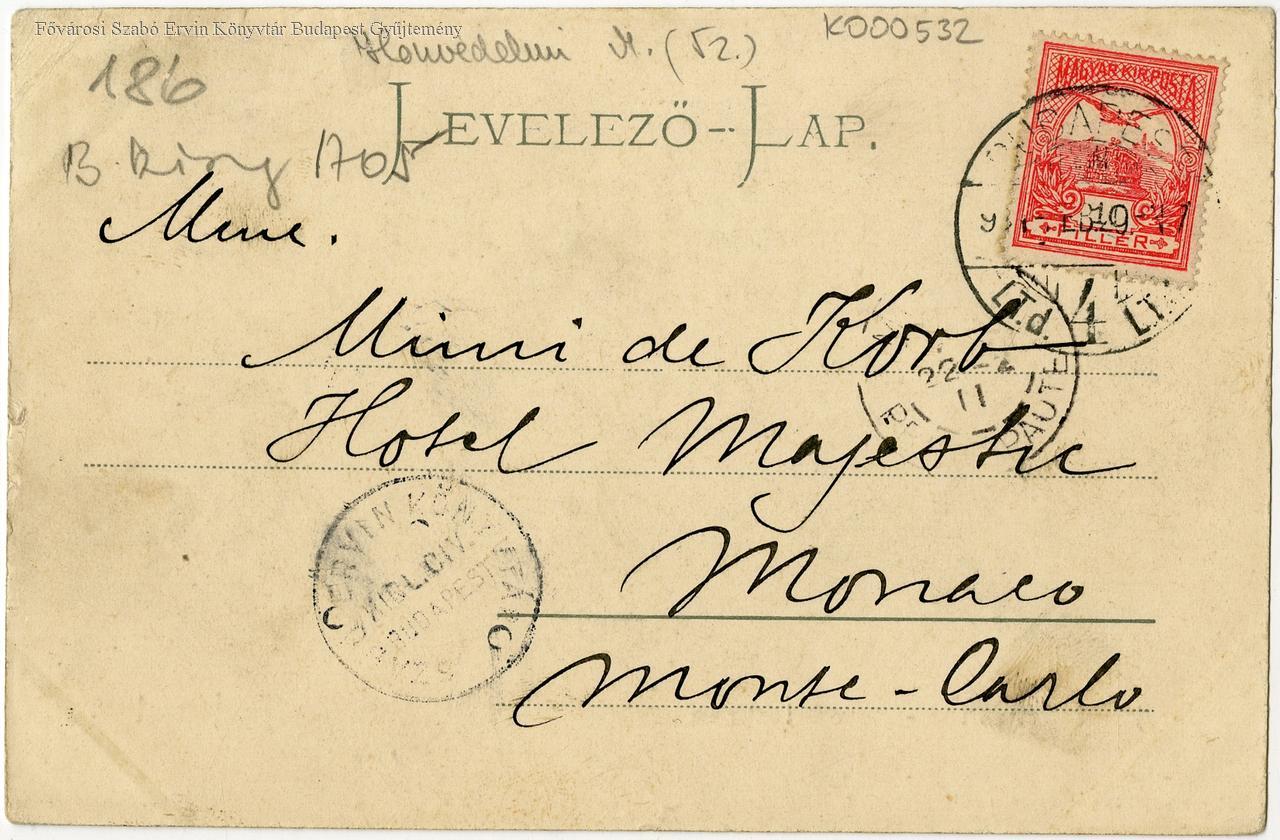 Fővárosi Szabó Ervin Könyvtár Budapest Gyűjtemény
Honvédelmi M. (Sz.)
K000532
186
LEVELEZŐ-LAP.
B 1705
MAGYAR KIR. POSTA
BUDAPEST
10
FILLÉR
4
Mme.
Mimi de Korb
22
11
Hotel Majestic
Monaco
Monte-Carlo
SZABÓ ERVIN KÖNYVTÁR
BUDAPEST